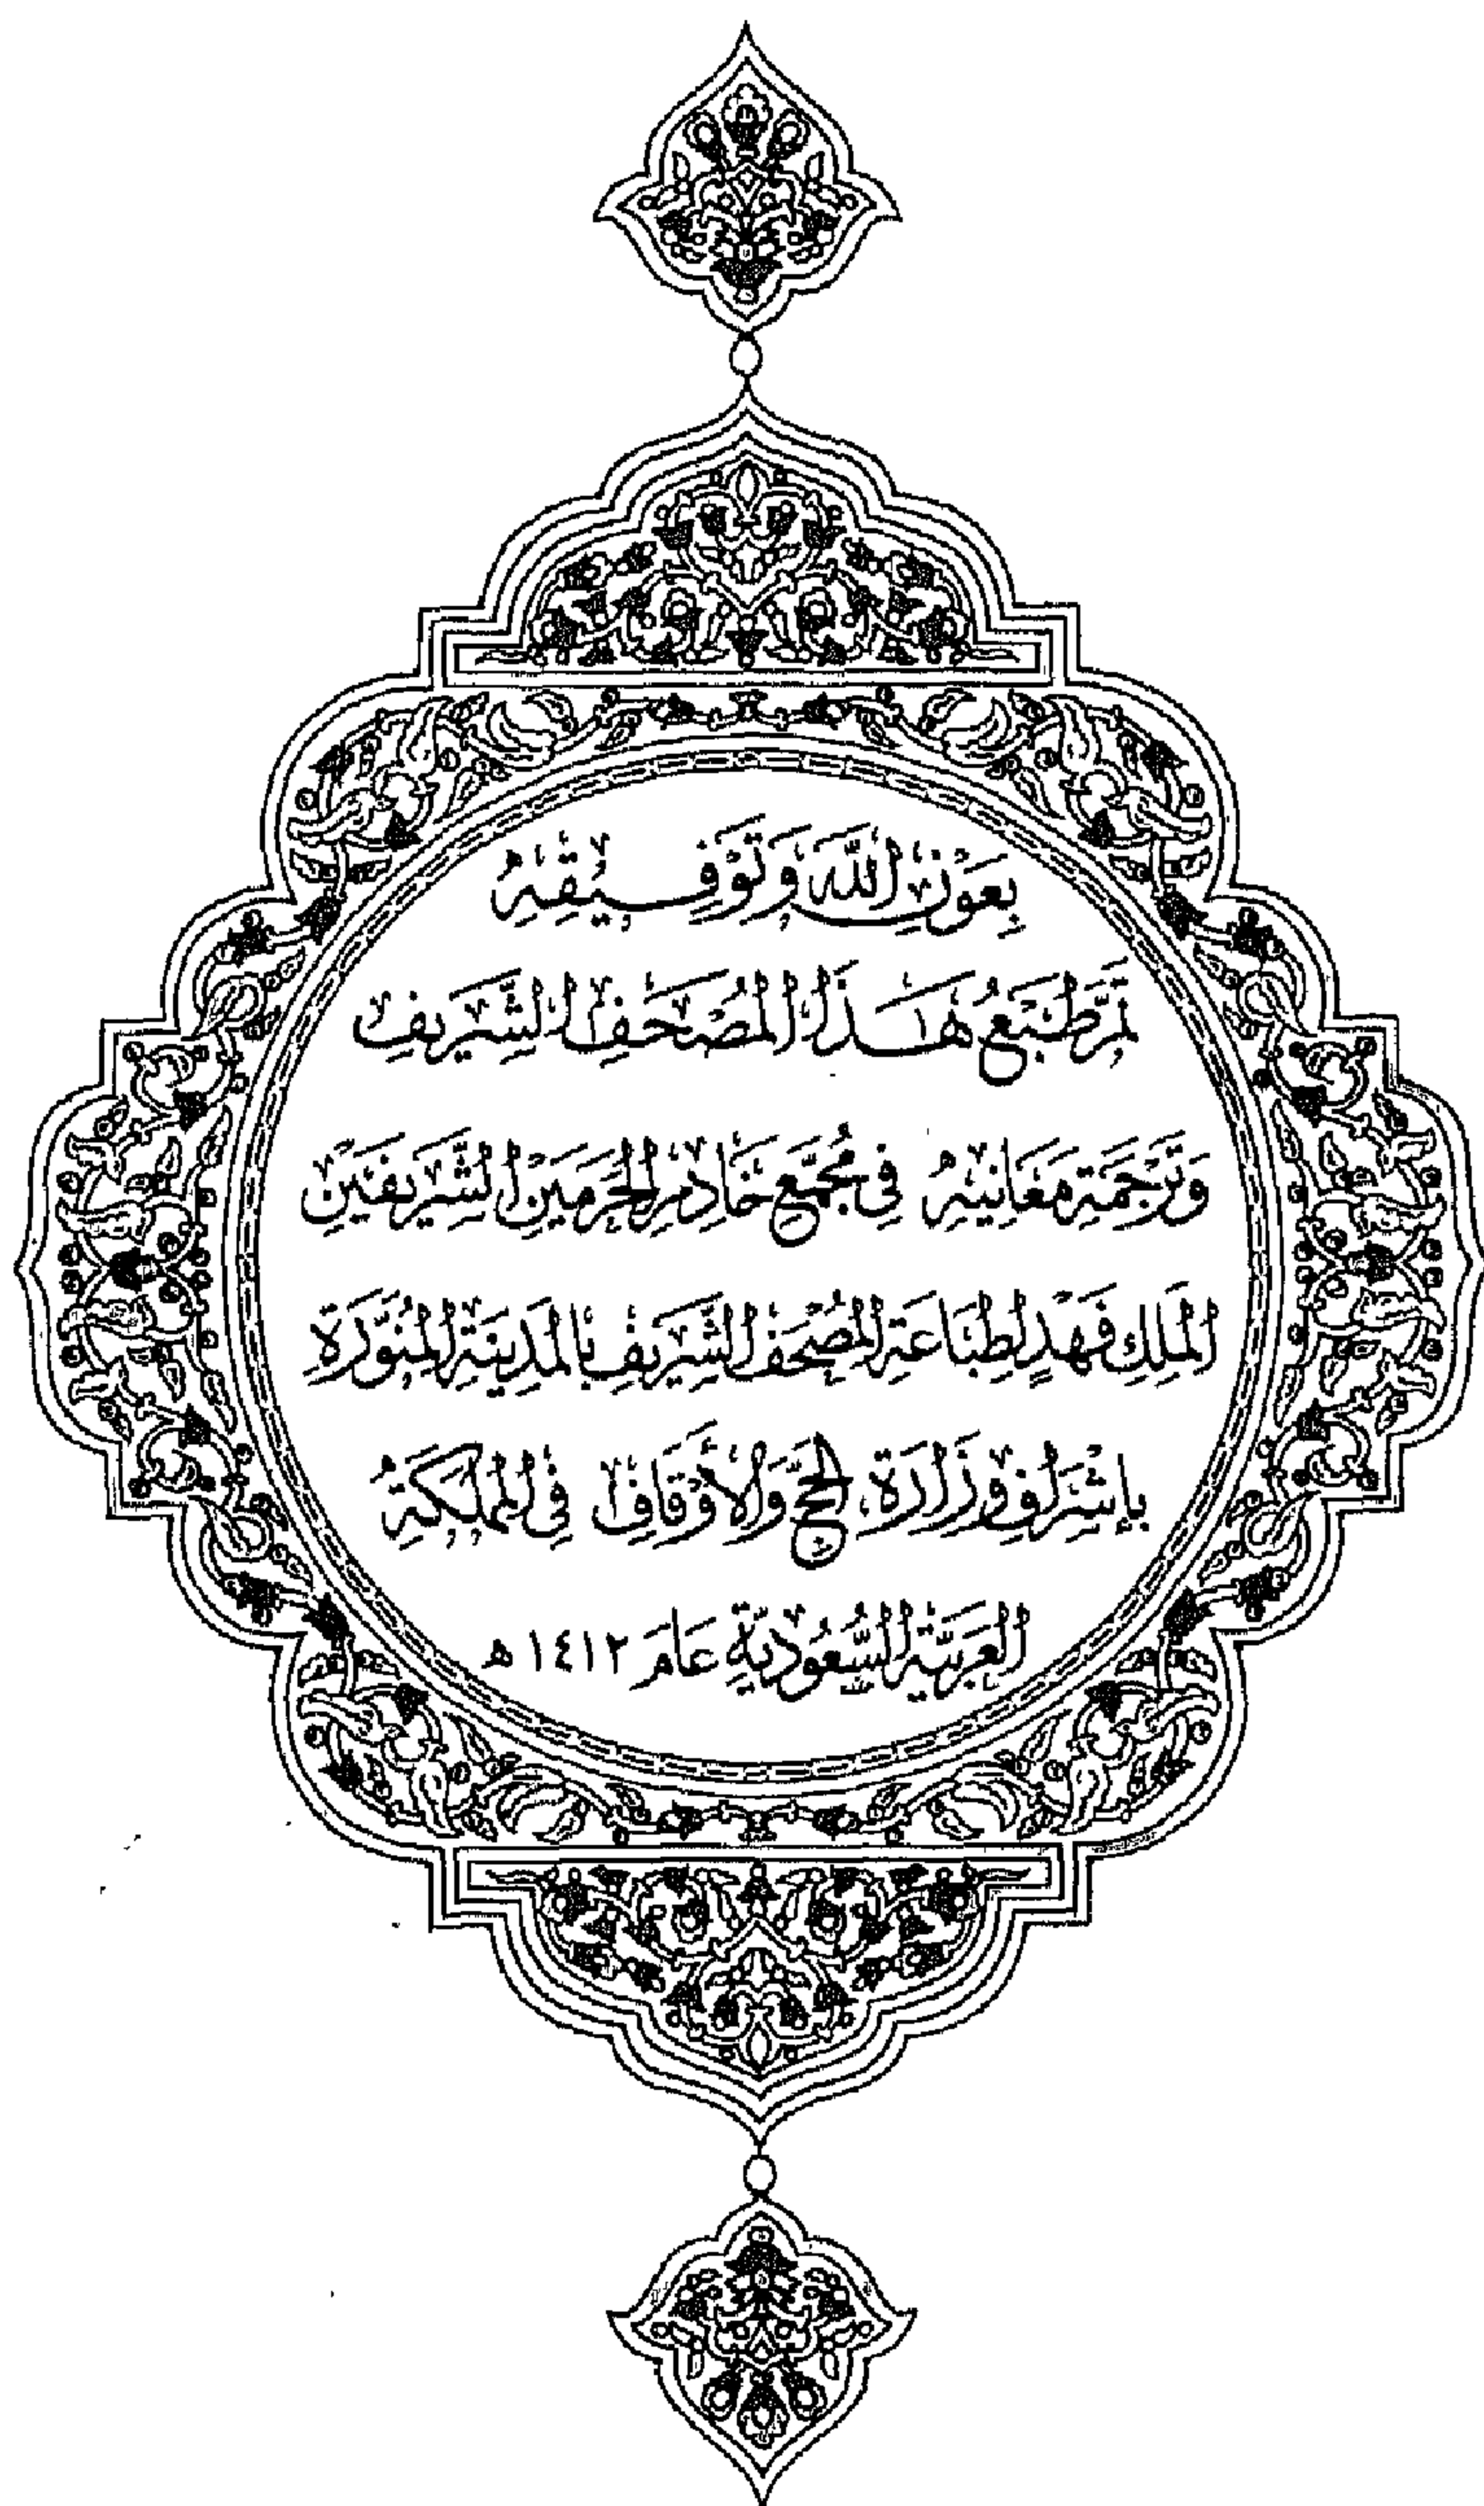 بِعَوْنِ اللَّهِ وَتَوْفِيقِهِ
تَمَّ طَبْعُ هَٰذَا الْمُصْحَفِ الشَّرِيفِ
وَتَرْجَمَةِ مَعَانِيهِ فِي مُجَمَّعِ خَادِمِ الْحَرَمَيْنِ الشَّرِيفَيْنِ
الْمَلِكِ فَهْدٍ لِطِبَاعَةِ الْمُصْحَفِ الشَّرِيفِ بِالْمَدِينَةِ الْمُنَوَّرَةِ
بِإِشْرَافِ وِزَارَةِ الْحَجِّ وَالْأَوْقَافِ فِي الْمَمْلَكَةِ
الْعَرَبِيَّةِ السُّعُودِيَّةِ عَامَ ١٤١٢ هـ